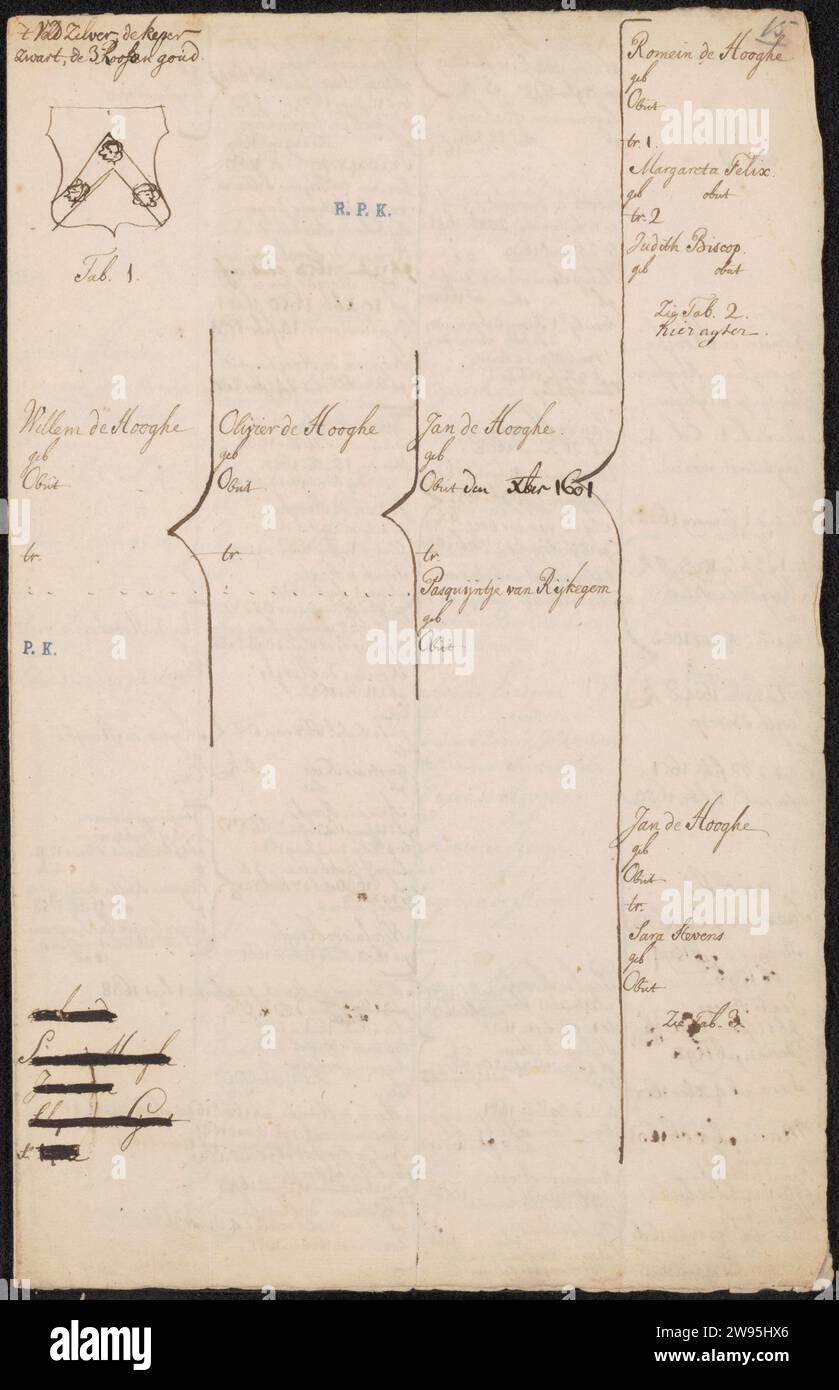 zilver, de keper
zwart, de 3 Roosen goud
Tab. 1.
R. P. K.
15
Romein de Hooghe
geb
Obiit
tr. 1.
Margareta Felix.
geb obiit
tr. 2
Judith Biscop.
geb obiit
Zie Tab. 2.
hier agter.
Willem de Hooghe
geb
Obiit
tr.
Olivier de Hooghe
geb
Obiit
tr.
Jan de Hooghe.
geb
Obiit den Xber 1601
tr.
Pasquijntje van Rijkegem
geb
Obiit
P. K.
Jan de Hooghe
geb
Obiit
tr.
Sara Hevens
geb
Obiit
Zie Tab. 3.
alamy
alamy
Image ID: 2W95HX6
www.alamy.com